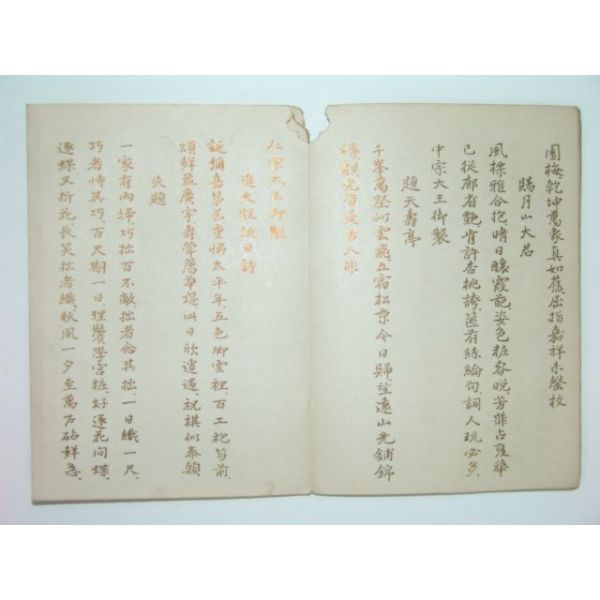 園梅乾坤萬象真如舊屈指嘉祥未罄枚
賜月山大君
風標雅合抱晴日釀霞艷姿色粧春晚芳菲占後華
已從廊省艷肯許杏桃誇篋有絲綸句詞人玩必多
中宗大王御製
題天壽亭
千峯萬壑何雲飛五宿松京今日歸望遠山光鋪錦
是古人非
仁宗大王御製
進大殿誕日詩
誕彌嘉節屬重陽太平年五色卿雲裡百工袍笏前
頌獻盈廣宇壽聲
此日欣遭遇祝祺何泰顛
失題
一家有兩婦巧拙百不敵拙者念其拙一日織一尺
巧者恃其巧百尺期一日理鬢學宮粧好逐花間蝶
逐蝶又折花長笑拙者織秋風一夕至萬戶砧聲急